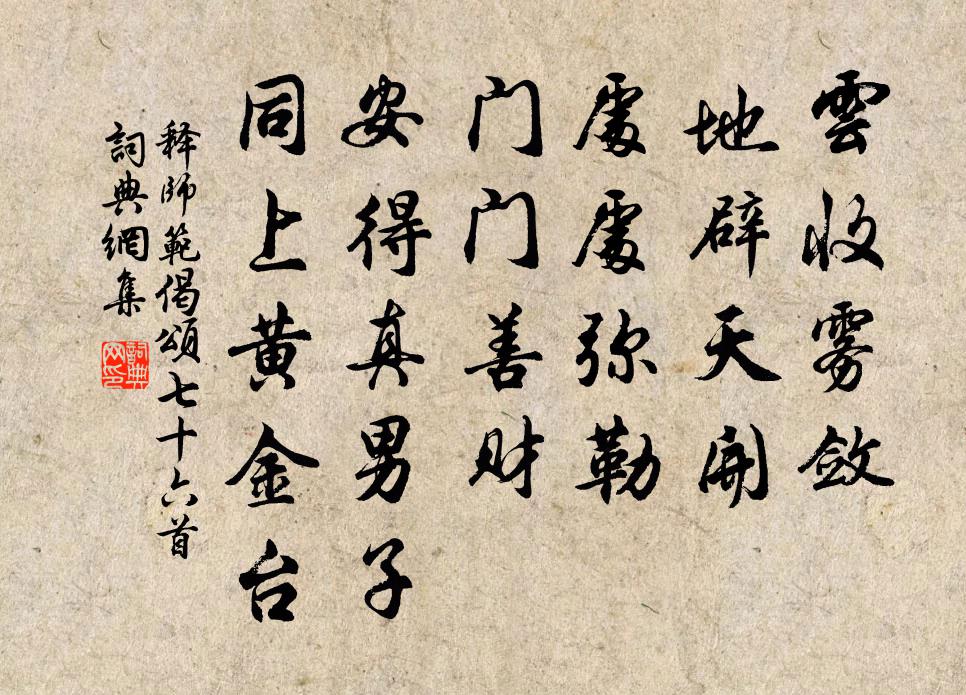 雲收雾斂
地辟天開
處處弥勒
门门善财
安得真男子
同上黄金台
释師範偈頌七十六首
詞典網集
詞典网印